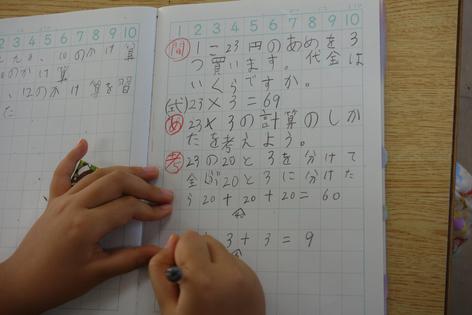 2 3 4 5 6 7 8 9 10
10のかけ算
のかけ算
、12のかけ算を習
た
1 2 3 4 5 6 7 8 9 10
問 1こ23円のあめを3
つ買います。代金は
いくらですか。
(式)23×3=69
め 23×3の計算のしか
たを考えよう。
考 23の20と3を分けて
全ぶ20と3に分けた
ら20+20+20=60
3+3=9